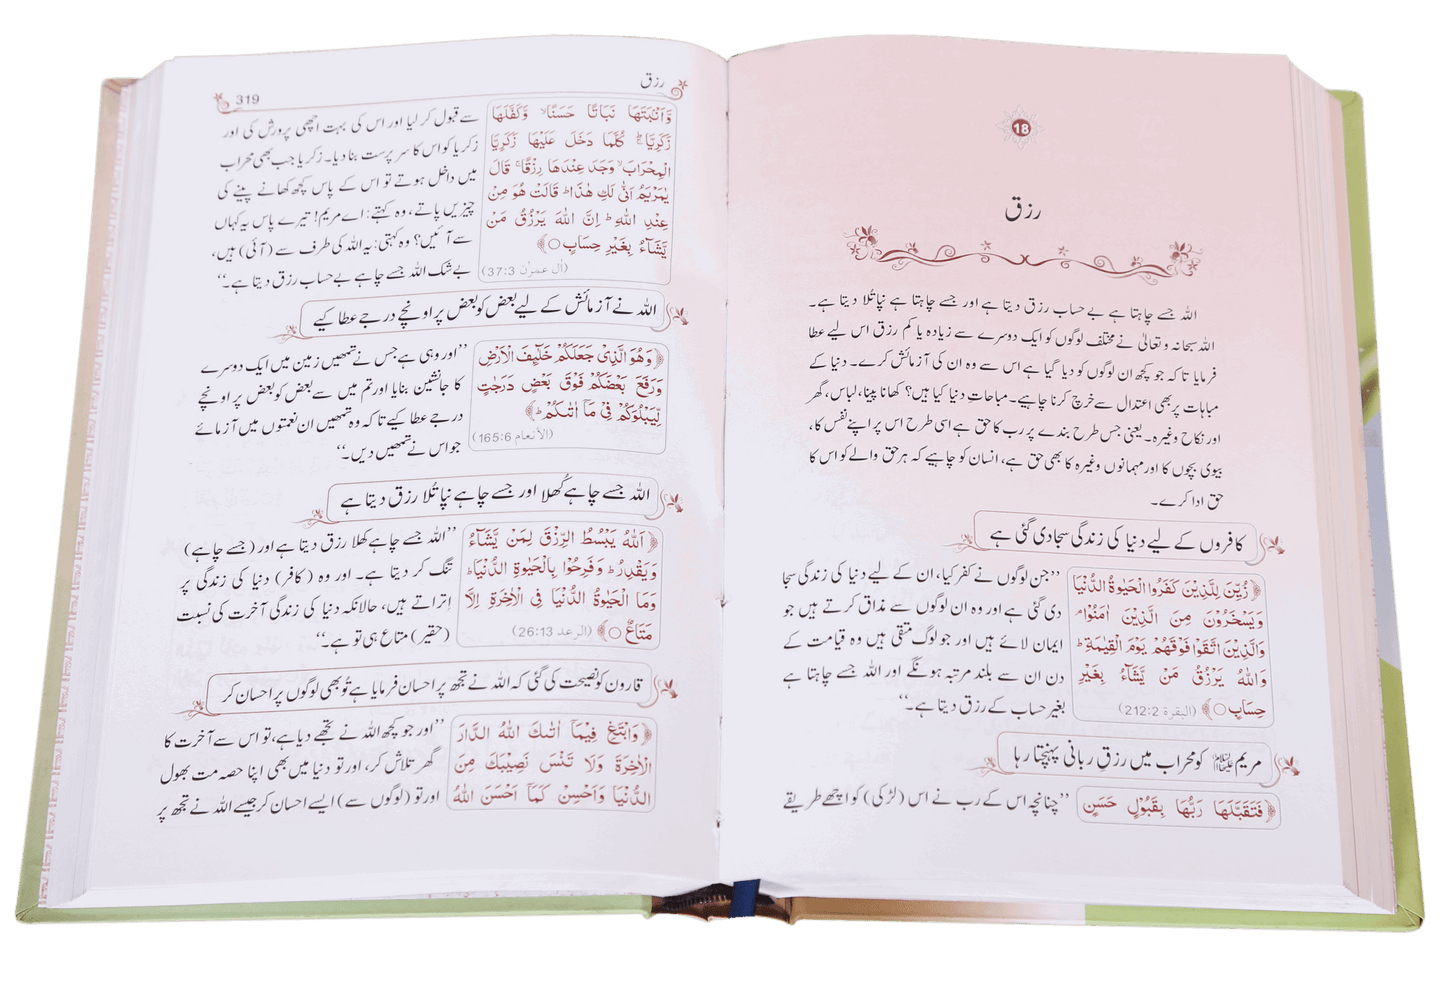 18
رزق
اللہ جسے چاہتا ہے بے حساب رزق دیتا ہے اور جسے چاہتا ہے نپا تُلا دیتا ہے۔
اللہ سبحانہ و تعالیٰ نے مختلف لوگوں کو ایک دوسرے سے زیادہ یا کم رزق اس لیے عطا
فرمایا تاکہ جو کچھ ان لوگوں کو دیا گیا ہے اس سے وہ ان کی آزمائش کرے۔ دنیا کے
مباہات پر بھی اعتدال سے خرچ کرنا چاہیے۔ مباحاتِ دنیا کیا ہیں؟ کھانا پینا، لباس، گھر
اور نکاح وغیرہ۔ یعنی جس طرح بندے پر رب کا حق ہے اسی طرح اس پر اپنے نفس کا،
بیوی بچوں کا اور مہمانوں وغیرہ کا بھی حق ہے، انسان کو چاہیے کہ ہر حق والے کو اس کا
حق ادا کرے۔
کافروں کے لیے دنیا کی زندگی سجا دی گئی ہے
﴿زُيِّنَ لِلَّذِيْنَ كَفَرُوا الْحَيٰوةُ الدُّنْيَا
وَيَسْخَرُوْنَ مِنَ الَّذِيْنَ اٰمَنُوْا ۘ
وَالَّذِيْنَ اتَّقَوْا فَوْقَهُمْ يَوْمَ الْقِيٰمَةِ ؕ
وَاللّٰهُ يَرْزُقُ مَنْ يَّشَآءُ بِغَيْرِ
حِسَابٍ ○﴾ (البقرة 212:2)
’’جن لوگوں نے کفر کیا، ان کے لیے دنیا کی زندگی سجا
دی گئی ہے اور وہ ان لوگوں سے مذاق کرتے ہیں جو
ایمان لائے ہیں اور جو لوگ متقی ہیں وہ قیامت کے
دن ان سے بلند مرتبہ ہونگے اور اللہ جسے چاہتا ہے
بغیر حساب کے رزق دیتا ہے۔‘‘
مریم علیہا السلام کو محراب میں رزقِ ربانی پہنچتا رہا
﴿فَتَقَبَّلَهَا رَبُّهَا بِقَبُوْلٍ حَسَنٍ
’’چنانچہ اس کے رب نے اس (لڑکی) کو اچھے طریقے
رزق
319
وَّاَنْۢبَتَهَا نَبَاتًا حَسَنًا ۙ وَّكَفَّلَهَا
زَكَرِيَّا ؕ كُلَّمَا دَخَلَ عَلَيْهَا زَكَرِيَّا
الْمِحْرَابَ ۙ وَجَدَ عِنْدَهَا رِزْقًا ۚ قَالَ
يٰمَرْيَمُ اَنّٰى لَكِ هٰذَا ؕ قَالَتْ هُوَ مِنْ
عِنْدِ اللّٰهِ ؕ اِنَّ اللّٰهَ يَرْزُقُ مَنْ
يَّشَآءُ بِغَيْرِ حِسَابٍ ○﴾
(اٰل عمرٰن 37:3)
سے قبول کر لیا اور اس کی بہت اچھی پرورش کی اور
زکریا کو اس کا سرپرست بنا دیا۔ زکریا جب بھی محراب
میں داخل ہوتے تو اس کے پاس کچھ کھانے پینے کی
چیزیں پاتے، وہ کہتے: اے مریم! تیرے پاس یہ کہاں
سے آئیں؟ وہ کہتی: یہ اللہ کی طرف سے (آئی) ہیں،
بے شک اللہ جسے چاہے بے حساب رزق دیتا ہے۔‘‘
اللہ نے آزمائش کے لیے بعض کو بعض پر اونچے درجے عطا کیے
﴿وَهُوَ الَّذِيْ جَعَلَكُمْ خَلٰٓئِفَ الْاَرْضِ
وَرَفَعَ بَعْضَكُمْ فَوْقَ بَعْضٍ دَرَجٰتٍ
لِّيَبْلُوَكُمْ فِيْ مَاۤ اٰتٰىكُمْ ؕ﴾
(الأنعام 165:6)
’’اور وہی ہے جس نے تمھیں زمین میں ایک دوسرے
کا جانشین بنایا اور تم میں سے بعض کو بعض پر اونچے
درجے عطا کیے تاکہ وہ تمھیں ان نعمتوں میں آزمائے
جو اس نے تمھیں دیں۔‘‘
اللہ جسے چاہے کُھلا اور جسے چاہے نپا تُلا رزق دیتا ہے
﴿اَللّٰهُ يَبْسُطُ الرِّزْقَ لِمَنْ يَّشَآءُ
وَيَقْدِرُ ؕ وَفَرِحُوْا بِالْحَيٰوةِ الدُّنْيَا ؕ
وَمَا الْحَيٰوةُ الدُّنْيَا فِي الْاٰخِرَةِ اِلَّا
مَتَاعٌ ○﴾ (الرعد 26:13)
’’اللہ جسے چاہے کھلا رزق دیتا ہے اور (جسے چاہے)
تنگ کر دیتا ہے۔ اور وہ (کافر) دنیا کی زندگی پر
اِتراتے ہیں، حالانکہ دنیا کی زندگی آخرت کی نسبت
(حقیر) متاع ہی تو ہے۔‘‘
قارون کو نصیحت کی گئی کہ اللہ نے تجھ پر احسان فرمایا ہے تُو بھی لوگوں پر احسان کر
﴿وَابْتَغِ فِيْمَاۤ اٰتٰىكَ اللّٰهُ الدَّارَ
الْاٰخِرَةَ وَلَا تَنْسَ نَصِيْبَكَ مِنَ
الدُّنْيَا وَاَحْسِنْ كَمَاۤ اَحْسَنَ اللّٰهُ
’’اور جو کچھ اللہ نے تجھے دیا ہے، تو اس سے آخرت کا
گھر تلاش کر، اور تو دنیا میں بھی اپنا حصہ مت بھول
اور تو (لوگوں سے) ایسے احسان کر جیسے اللہ نے تجھ پر